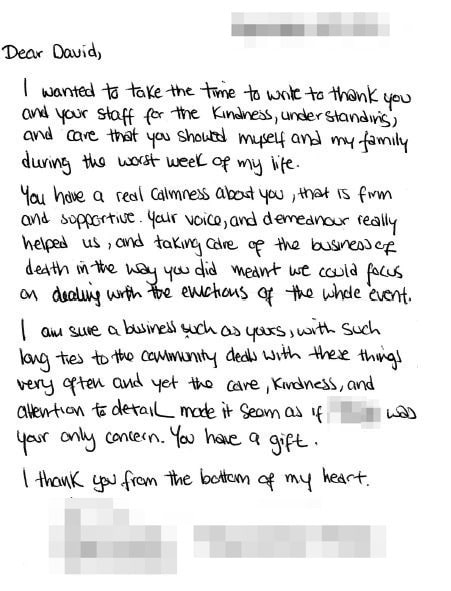 Dear David,
I wanted to take the time to write to thank you
and your staff for the kindness, understanding,
and care that you showed myself and my family
during the worst week of my life.
You have a real calmness about you, that is firm
and supportive. Your voice, and demeanour really
helped us, and taking care of the business of
death in the way you did meant we could focus
on dealing with the emotions of the whole event.
I am sure a business such as yours, with such
long ties to the community deals with these things
very often and yet the care, kindness, and
attention to detail made it seam as if was
your only concern. You have a gift.
I thank you from the bottom of my heart.